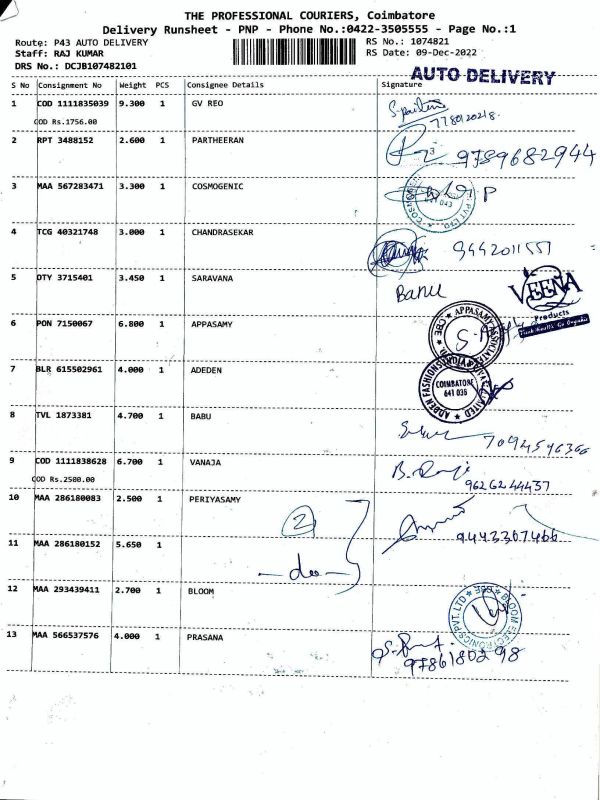 THE PROFESSIONAL COURIERS, Coimbatore
Delivery Runsheet - PNP - Phone No.:0422-3505555 - Page No.:1
Route: P43 AUTO DELIVERY
Staff: RAJ KUMAR
DRS No.: DCJB107482101
RS No.: 1074821
RS Date: 09-Dec-2022
AUTO DELIVERY
S No Consignment No Weight PCS Consignee Details Signature
1 COD 1111835039 9.300 1 GV REO
COD Rs.1756.00
7780120218
2 RPT 3488152 2.600 1 PARTHEERAN 9789682944
3 MAA 567283471 3.300 1 COSMOGENIC
4 TCG 40321748 3.000 1 CHANDRASEKAR 9442011551
5 DTY 3715401 3.450 1 SARAVANA Banu
VEENA
Products
6 PON 7150067 6.800 1 APPASAMY
7 BLR 615502961 4.000 1 ADEDEN
COIMBATORE
8 TVL 1873381 4.700 1 BABU 7094596366
9 COD 1111838628 6.700 1 VANAJA
COD Rs.2500.00
9626244437
10 MAA 286180083 2.500 1 PERIYASAMY 2
9443307466
11 MAA 286180152 5.650 1
12 MAA 293439411 2.700 1 BLOOM
BLOOM ELECTRONICS PVT. LTD
13 MAA 566537576 4.000 1 PRASANA
9786180298